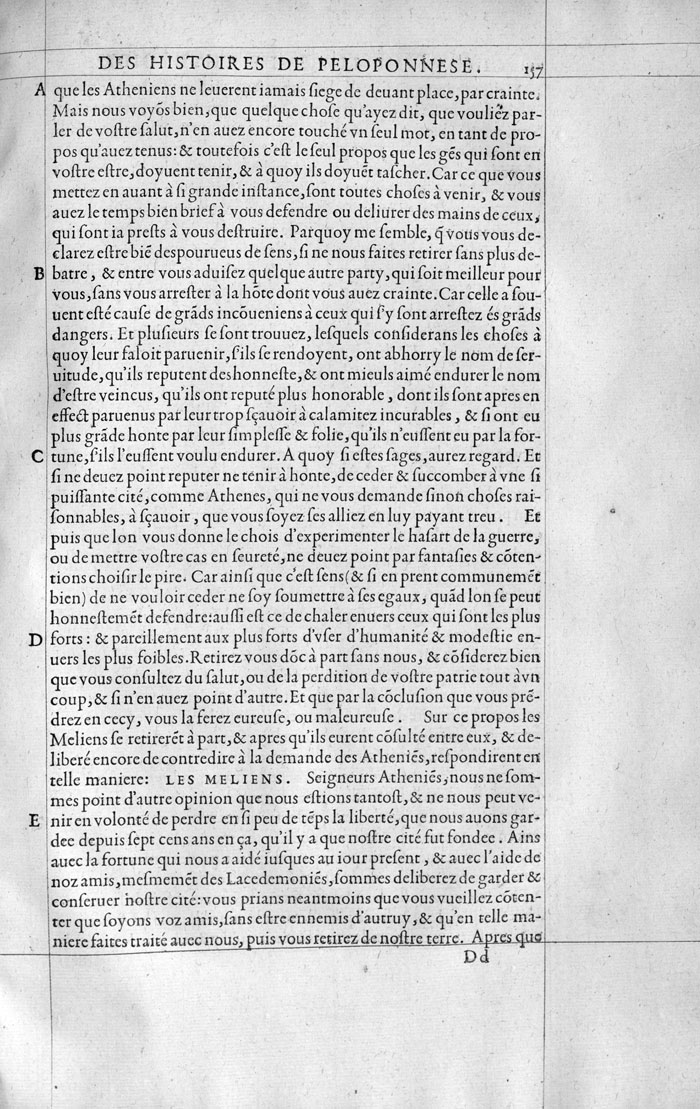 DES HISTOIRES DE PELOPONNESE. 157
A que les Atheniens ne leuerent iamais ſiege de deuant place, par crainte.
Mais nous voyõs bien, que quelque choſe qu'ayez dit, que vouliéz par-
ler de voſtre ſalut, n'en auez encore touché vn ſeul mot, en tant de pro-
pos qu'auez tenus: & toutefois c'eſt le ſeul propos que les gẽs qui ſont en
voſtre eſtre, doyuent tenir, & à quoy ils doyuẽt taſcher. Car ce que vous
mettez en auant à ſi grande inſtance, ſont toutes choſes à venir, & vous
auez le temps bien brief à vous defendre ou deliurer des mains de ceux,
qui ſont ia preſts à vous deſtruire. Parquoy me ſemble, q̃ vous vous de-
clarez eſtre biẽ deſpourueus de ſens, ſi ne nous faites retirer ſans plus de-
B batre, & entre vous aduiſez quelque autre party, qui ſoit meilleur pour
vous, ſans vous arreſter à la hõte dont vous auez crainte. Car celle a ſou-
uent eſté cauſe de grãds incõueniens à ceux qui ſ'y ſont arreſtez és grãds
dangers. Et pluſieurs ſe ſont trouuez, leſquels conſiderans les choſes à
quoy leur faloit paruenir, ſ'ils ſe rendoyent, ont abhorry le nom de ſer-
uitude, qu'ils reputent deshonneſte, & ont mieuls aimé endurer le nom
d'eſtre veincus, qu'ils ont reputé plus honorable, dont ils ſont apres en
effect paruenus par leur trop ſçauoir à calamitez incurables, & ſi ont eu
plus grãde honte par leur ſimpleſſe & folie, qu'ils n'euſſent eu par la for-
C tune, ſ'ils l'euſſent voulu endurer. A quoy ſi eſtes ſages, aurez regard. Et
ſi ne deuez point reputer ne tenir à honte, de ceder & ſuccomber à vne ſi
puiſſante cité, comme Athenes, qui ne vous demande ſinon choſes rai-
ſonnables, à ſçauoir, que vous ſoyez ſes alliez en luy payant treu. Et
puis que lon vous donne le chois d'experimenter le haſart de la guerre,
ou de mettre voſtre cas en ſeureté, ne deuez point par fantaſies & cõten-
tions choiſir le pire. Car ainſi que c'eſt ſens (& ſi en prent communemẽt
bien) de ne vouloir ceder ne ſoy ſoumettre à ſes egaux, quãd lon ſe peut
honneſtemẽt defendre: auſſi eſt ce de chaler enuers ceux qui ſont les plus
D forts: & pareillement aux plus forts d'vſer d'humanité & modeſtie en-
uers les plus foibles. Retirez vous dõc à part ſans nous, & cõſiderez bien
que vous conſultez du ſalut, ou de la perdition de voſtre patrie tout àvn
coup, & ſi n'en auez point d'autre. Et que par la cõcluſion que vous prẽ-
drez en cecy, vous la ferez eureuſe, ou maleureuſe. Sur ce propos les
Meliens ſe retirerẽt à part, & apres qu'ils eurent cõſulté entre eux, & de-
liberé encore de contredire à la demande des Atheniẽs, reſpondirent en
telle maniere: LES MELIENS. Seigneurs Atheniẽs, nous ne ſom-
mes point d'autre opinion que nous eſtions tantoſt, & ne nous peut ve-
E nir en volonté de perdre en ſi peu de tẽps la liberté, que nous auons gar-
dee depuis ſept cens ans en ça, qu'il y a que noſtre cité fut fondee. Ains
auec la fortune qui nous a aidé iuſques au iour preſent, & auec l'aide de
noz amis, meſmemẽt des Lacedemoniẽs, ſommes deliberez de garder &
conſeruer noſtre cité: vous prians neantmoins que vous vueillez cõten-
ter que ſoyons voz amis, ſans eſtre ennemis d'autruy, & qu'en telle ma-
niere faites traité auec nous, puis vous retirez de noſtre terre. Apres que
Dd